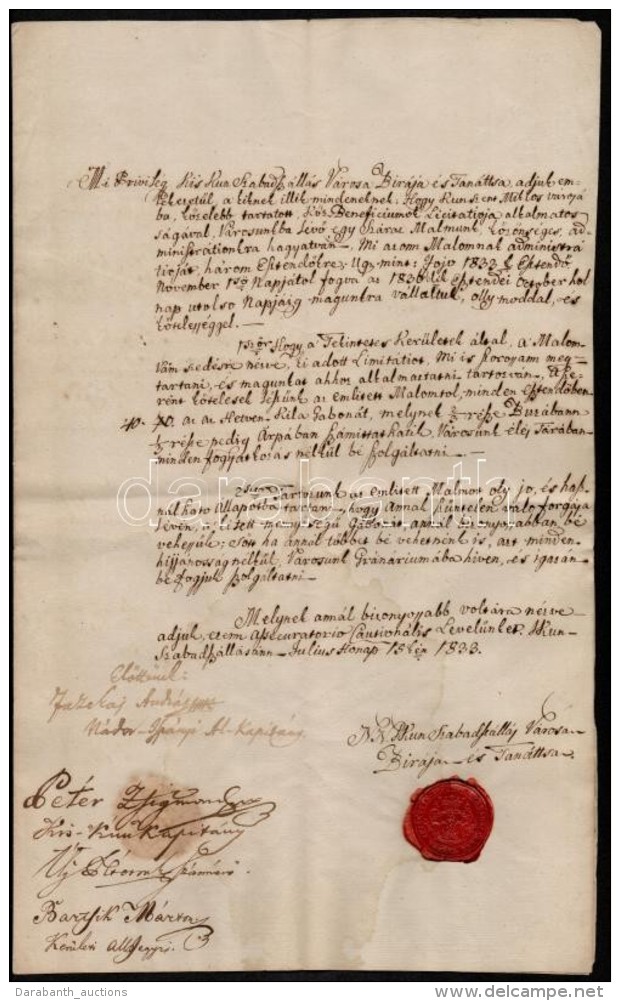 Mi Privileg Kis Kun Szabadszállás Városa Birája és Tanáttsa, adjuk em-
lékezetűl, a kiknek illik mindeneknek, Hogy Kun Szent Miklos varossá-
ba, közelebb tartatott Köz Beneficiumok Licitatioja alkalmatos-
ságával, Városunkba levő egy Száraz Malmunk, közönséges, ad-
ministrationkra hagyatván. Mi azom Malomnak administra
tioját, három Esztendőkre, Ugymint: Jöjő 1833 k Esztendő
November 1ső Napjától fogva az 1836 dik Esztendei October hol
nap utolso Napjáig magunkra vállaltuk, olly moddal, és
kötelességgel.
1ször Hogy a Tekintetes Kerületek által, a Malom-
vám szedésre nézve, ki adott Limitatiot, Mi is szorosann meg-
tartani, és magunkat ahhoz alkalmaztatni tartozván,
ként kötelesek lészünk az emlitett Malomtol, minden Esztendőben
40. 70. az az Hetven Kila Gabonát, melynek 2/3 része Buzábann
1/3 része pedig Árpában számittatkatik, Városunk élés Tárában
minden fogyatkozás nélkűl bé szolgáltatni.
2szor Tartozunk az emlitett Malmot oly jo, és hasz-
nálhato állapotba tartani, hogy annak szüntelen valo forgása
lévén, a kitett menyiségű Gabonát, annál bizonyosabban bé
vehessük; Sőtt ha annál többet bé vehetnénk is, azt minden
hijjánosság nélkűl, Városunk Gránáriumába hiven, és igazán
bé fogjuk szolgáltatni.
Melynek annál bizonyosabb voltára nézve
adjuk, ezem Assecuratorio Cautionális Levelünket. Kkun-
Szabadszállásánn Julius Honap 15kén 1833.
Előttünk:
Fazekas András
Nádor-Ispányi Al-Kapitány
N. N. Kkun Szabadszállás Városa
Birája és Tanáttsa.
Péter Zsigmond
Kis-Kun Kapitány
Uj
Bartsik Márton
Kerületi Al Jegyző
darabanth
Darabanth_auctions